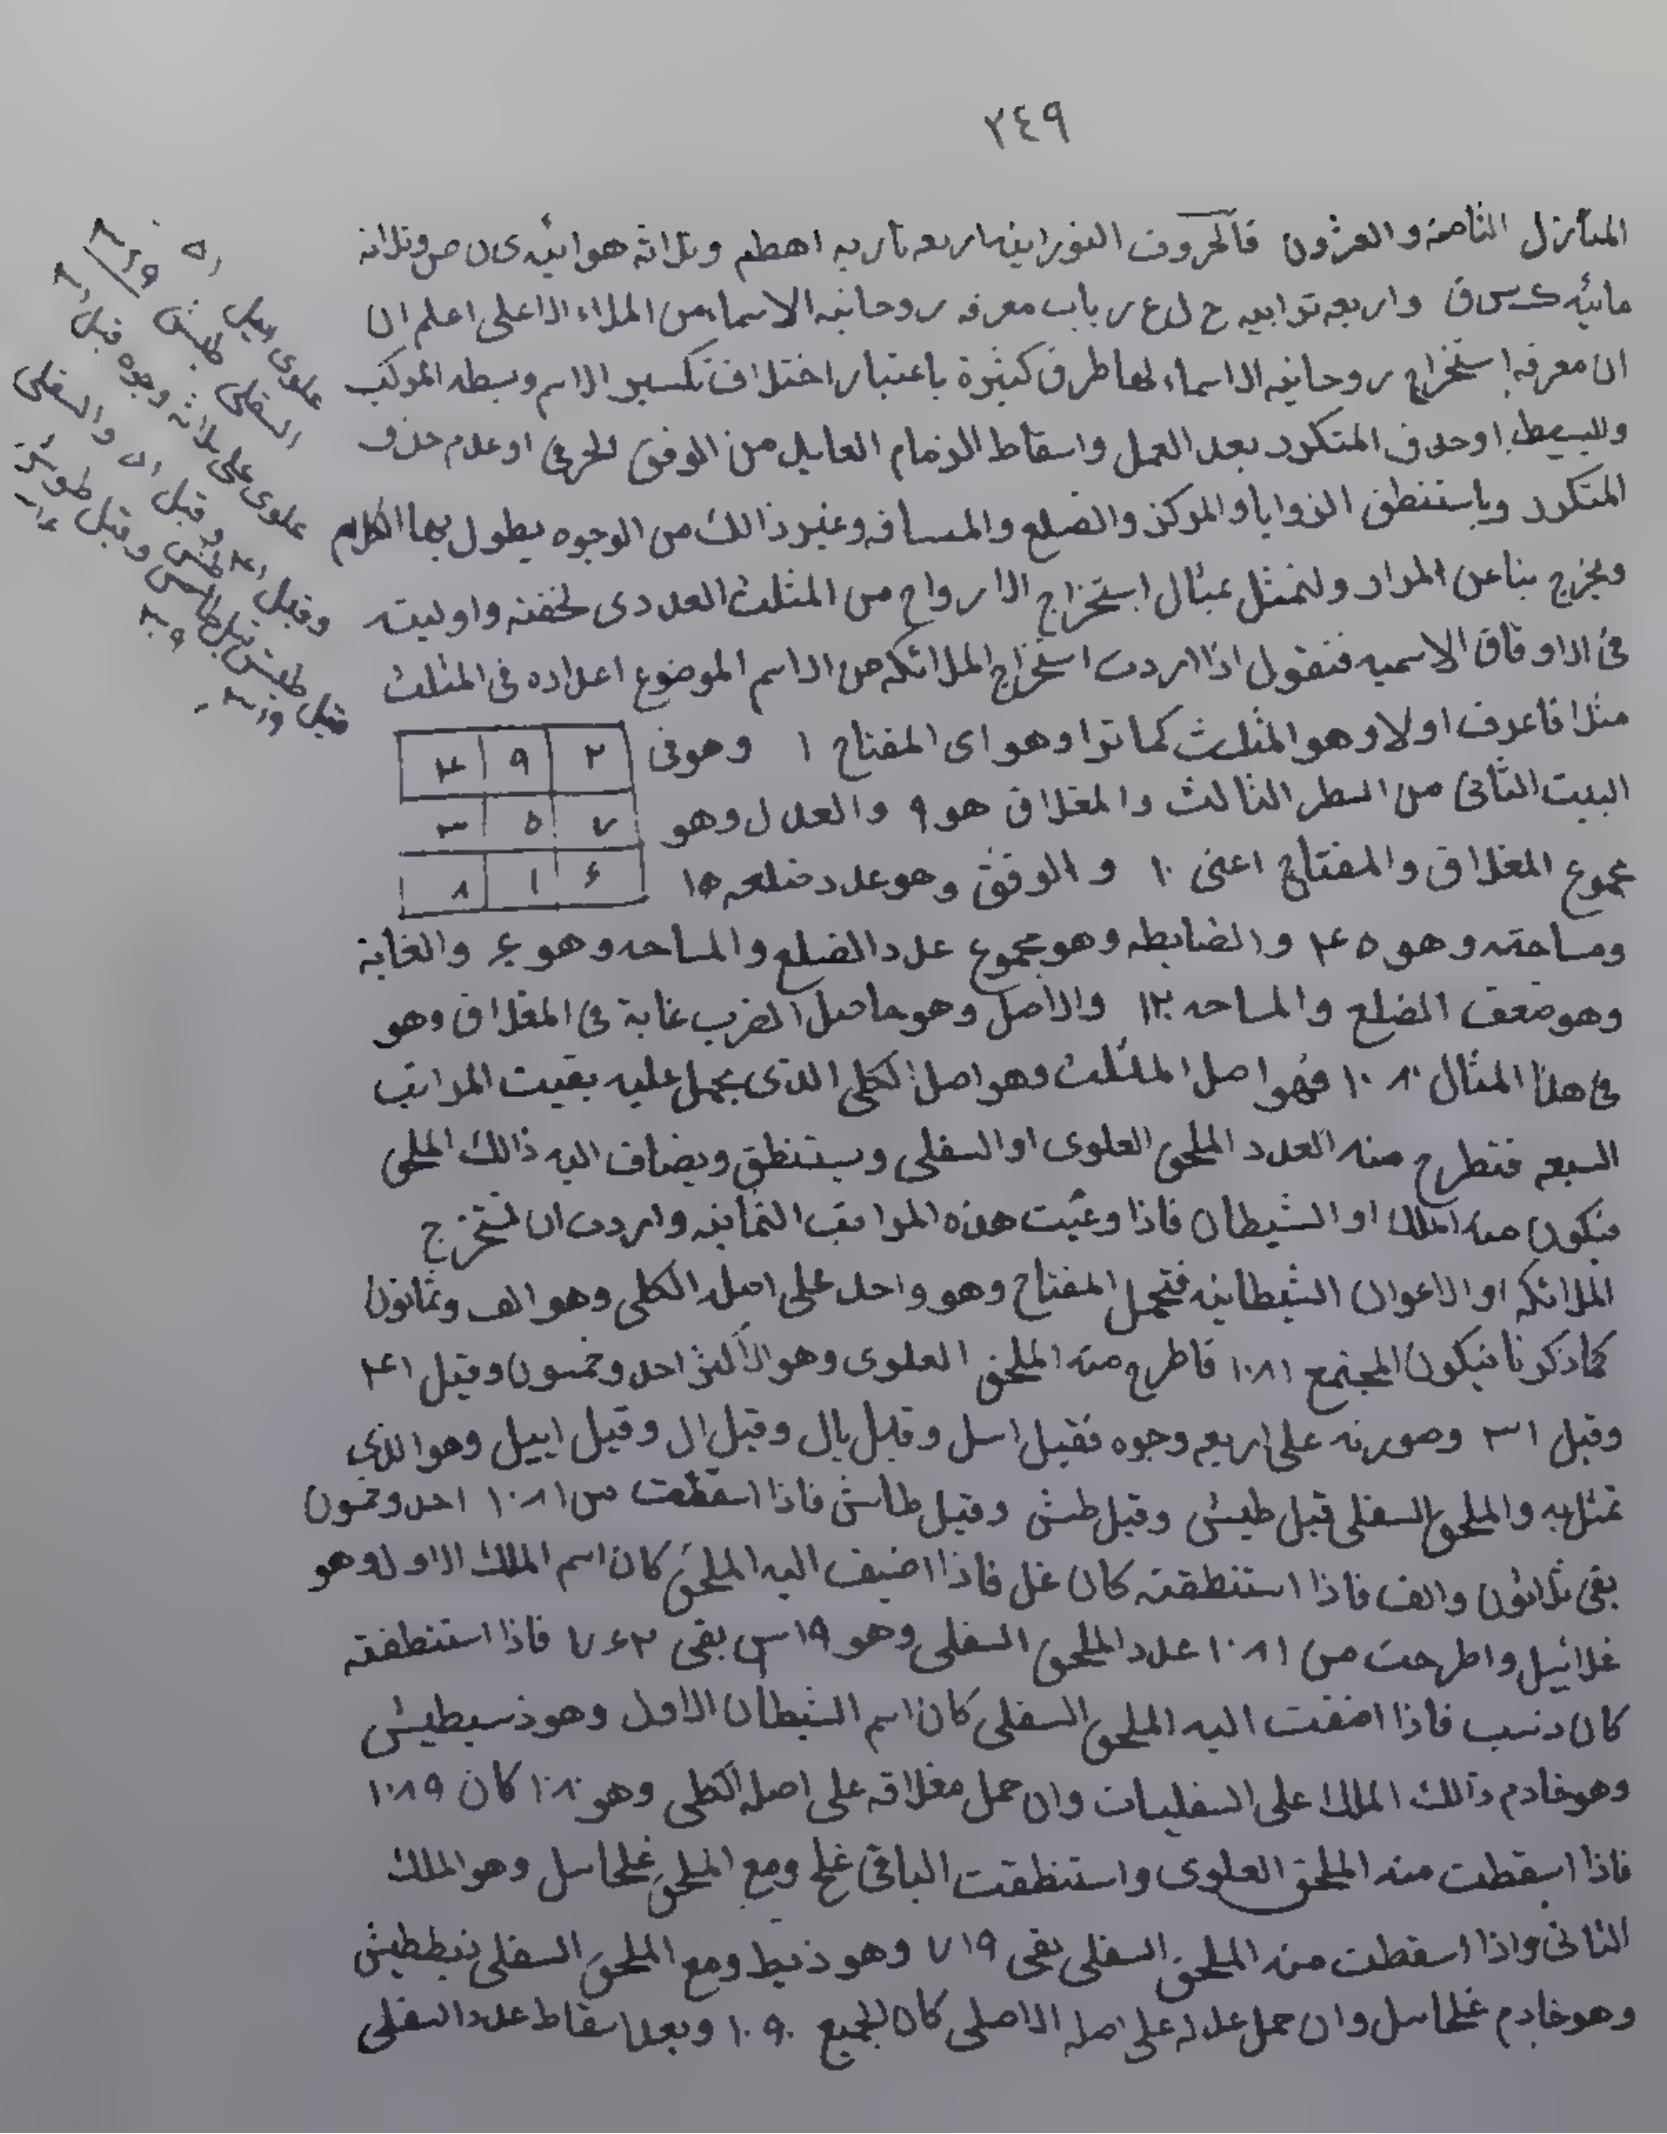 ٢٤٩
المنازل الثامنة والعشرون فالحروف النورانيه اربعه ناريه اهطم وثلاثه هوائيه ى ن ص وثلاثه
مائيه ك س ق واربعه ترابيه ح ل ع ر باب معرفه روحانيه الاسماء من الملاء الاعلى اعلم ان
ان معرفه استخراج روحانيه الاسماء لها طرق كثيرة باعتبار اختلاف تكسير الاسم وبسطه المركب
والبسيط اوحذف المتكرر بعد العمل واسقاط الزمام العايل من الوفق الحرفى اوعدم حذف
المتكرر وباستنطق الزوايا والمركز والضلع والمسافه وغير ذالك من الوجوه يطول بها الكلام
ويخرج بنا عن المراد ولنمثل بمثال استخراج الارواح من المثلث العددى لخفته واوليته
فى الاوفاق الاسميه فنقول اذا اردت استخراج الملائكه من الاسم الموضوع اعداده فى المثلث
مثلا فاعرف اولا وهو المثلث كما ترا وهو اى المفتاح ١ وهوفى
البيت الثانى من السطر الثالث والمغلاق هو ٩ والعدل وهو
مجموع المغلاق والمفتاح اعنى ١٠ والوفق وهو عدد ضلعه ١٥
٢ ٩ ۴
٧ ٥ ٣
۶ ١ ٨
ومساحته وهو ۴٥ والضابطه وهو مجموع عدد الضلع والمساحه وهو ۶٠ والغاية
وهو ضعف الضلع والمساحه ١٢٠ والاصل وهو حاصل الضرب غاية فى المغلاق وهو
فى هذا المثال ١٠٨٠ فهو اصل المثلث وهو اصل الكلى الذى يحمل عليه بقيت المراتب
السبعه فتطرح منه العدد الملحق العلوى او السفلى ويستنطق ويضاف اليه ذالك الملحق
فيكون منه الملك او الشيطان فاذا وعيت هذه المراتب الثمانيه واردت ان تستخرج
الملائكه او الاعوان الشيطانيه فتحمل المفتاح وهو واحد على اصله الكلى وهو الف وثمانون
كما ذكرنا فيكون المجتمع ١٠٨١ فاطرح منه الملحق العلوى وهو الأكثر احد وخمسون وقيل ۴١
وقيل ٣١ وصورته على اربعه وجوه فقيل اسل وقيل يال وقيل ال وقيل اييل وهو الذى
تمثل به والملحق السفلى قيل طيش وقيل طش وقيل طاش فاذا اسقطت من ١٠٨١ احد وخمسون
بقى ثلاثون والف فاذا استنطقته كان غل فاذا اضيف اليه الملحق كان اسم الملك الاول وهو
غلائيل واطرحت من ١٠٨١ عدد الملحق السفلى وهو ٣١٩ بقى ٧۶٢ فاذا استنطقته
كان ذسب فاذا اضفت اليه الملحق السفلى كان اسم الشيطان الاول وهو ذسبطيش
وهو خادم ذالك الملك على السفليات وان حمل مغلاقه على اصله الكلى وهو ١٠٨٠ كان ١٠٨٩
فاذا اسقطت منه الملحق العلوى واستنطقت الباقى غلح ومع الملحق غلحاسل وهو الملك
الثانى واذا اسقطت منه الملحق السفلى بقى ٧١٩ وهو ذيط ومع الملحق السفلى ذيططيش
وهو خادم غلحاسل وان حمل عدله على اصله الاصلى كان الجميع ١٠٩٠ وبعد اسقاط عدد السفلى
علوى اييل ٥١
السفلى طيش ٣١٩
علوى على ثلاثه وجوه قيل ٣١
وقيل ۴١ وقيل ٥١ والسفلى